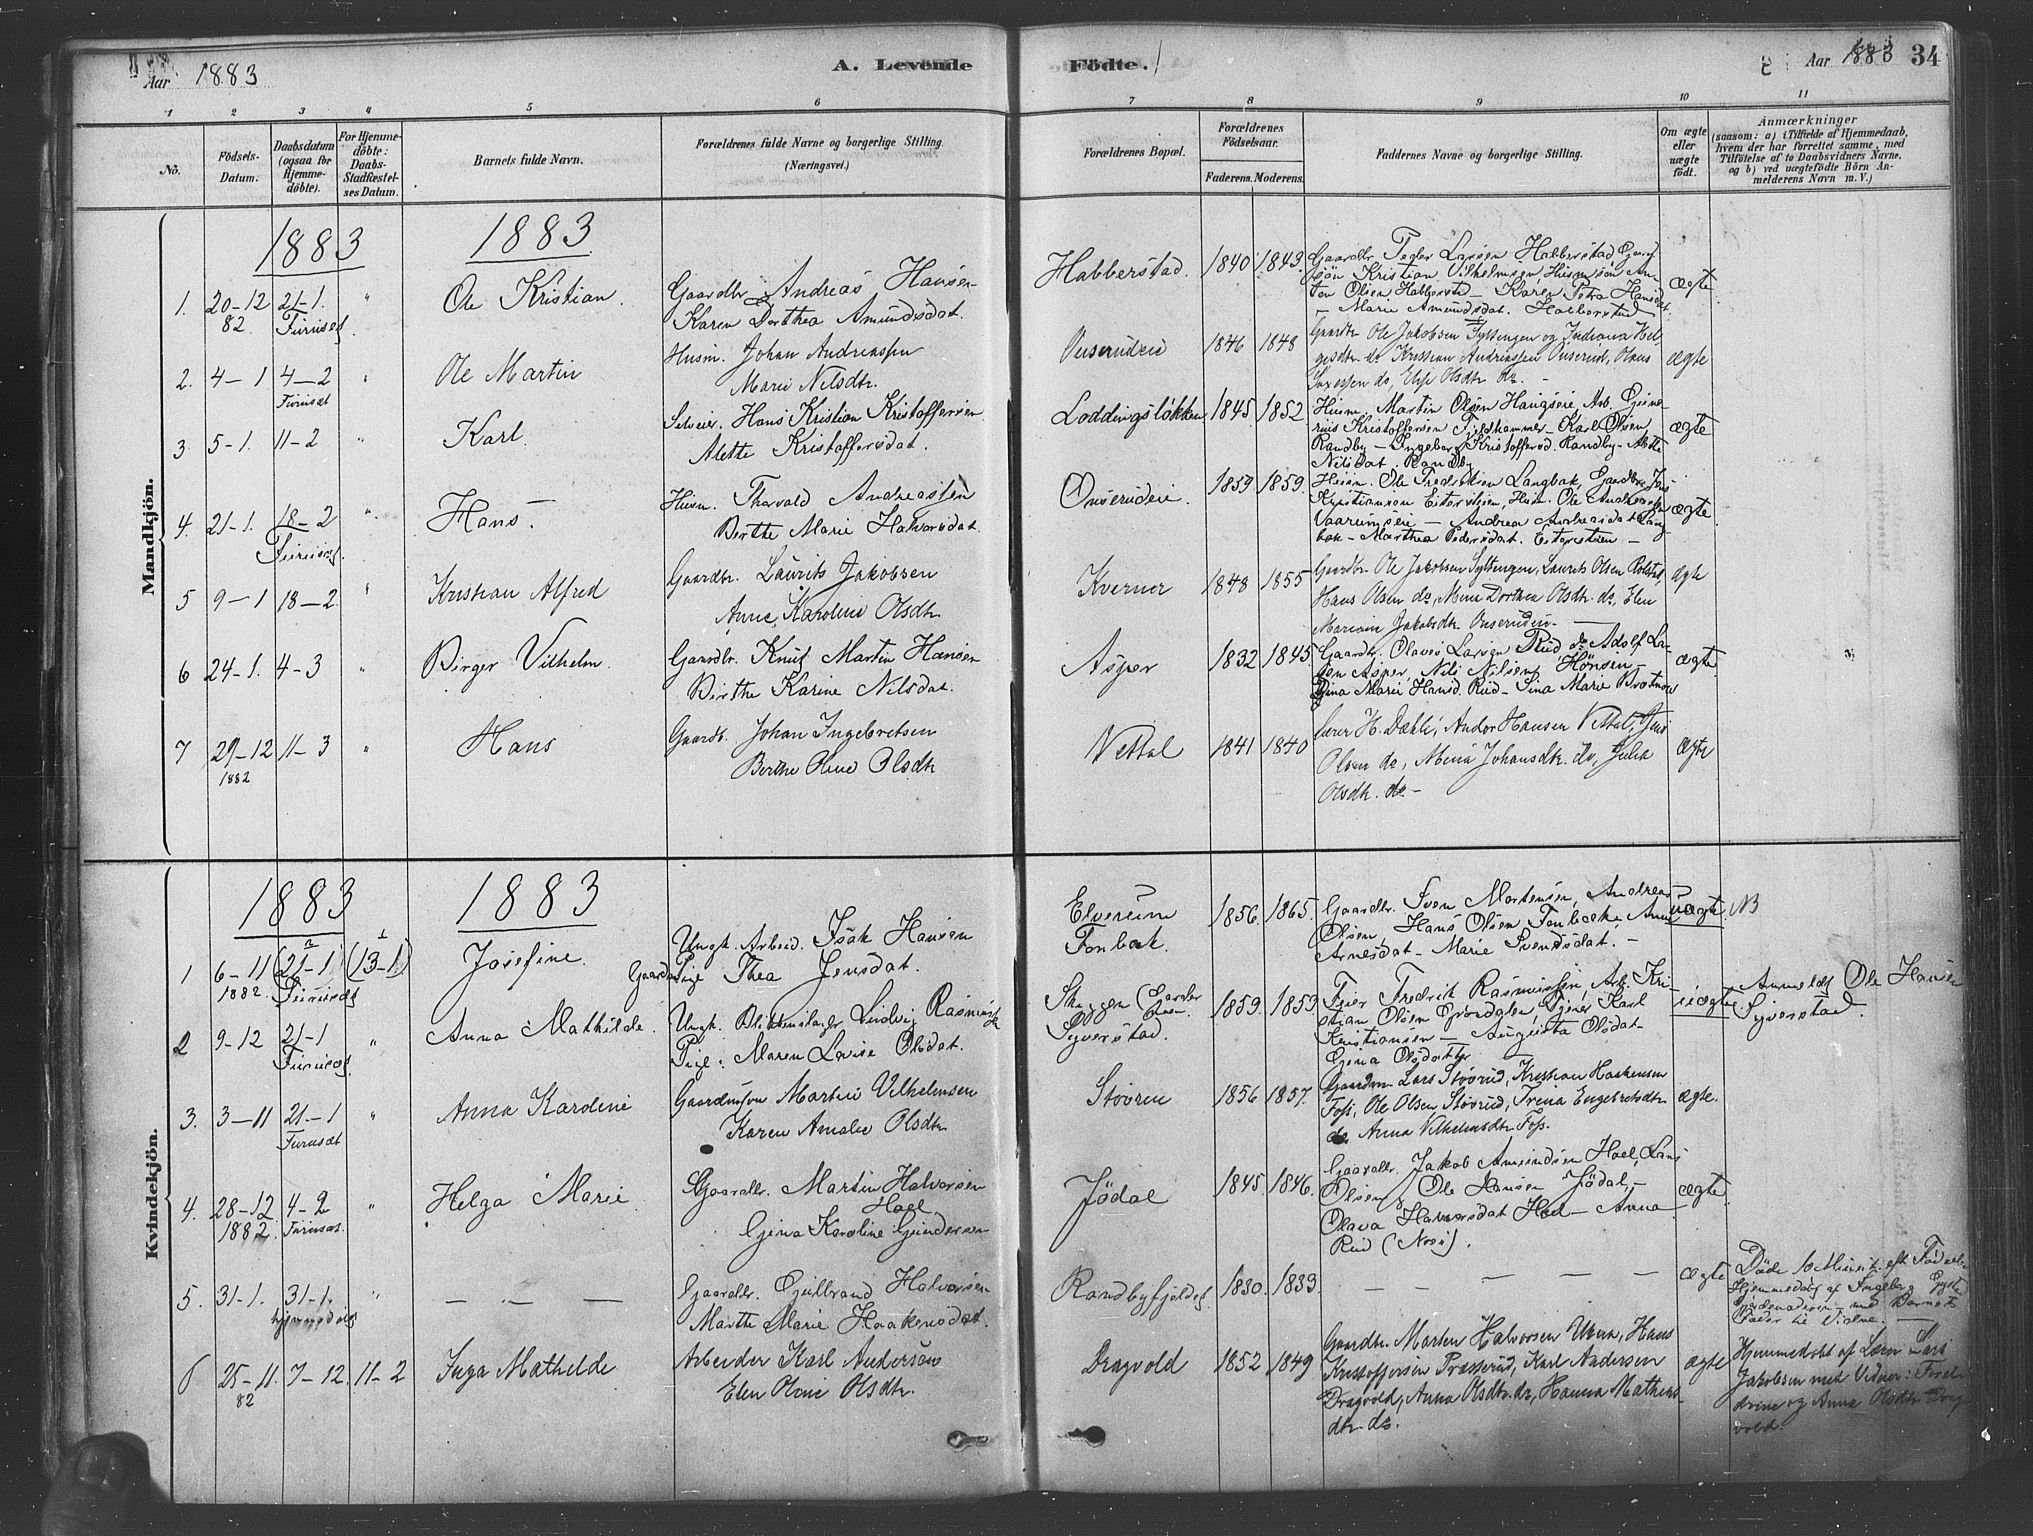 Aar 1883
A. Levende Födte.
Aar 1883 34
1 2 3 4 5 6 7 8 9 10 11
No.
Födsels-Datum.
Daabsdatum (ogsaa for Hjemmedöbte).
For Hjemmedöbte: Daabs-Stadfæstelses Datum.
Barnets fulde Navn.
Forældrenes fulde Navne og borgerlige Stilling
(Næringsvei.)
Forældrenes Bopæl.
Forældrenes Födselsaar.
Faderens. Moderens.
Faddernes Navne og borgerlige Stilling.
Om ægte eller uægte födt.
Anmærkninger
(saasom: a) i Tilfælde af Hjemmedaab,
hvem der har forrettet samme, med
Tilföielse af to Daabsvidners Navne.
og b) ved uægtefödte Börn An-
melderens Navn m. V.)
Mandkjön.
1883 1883
1. 20-12 82. 21-1. Furuset " Ole Kristian.
Gaardbr Andreas Hansen
Karen Dorthea Amundsdat.
Habberstad. 1840 1843.
Gaardbr Peder Larsen Habberstad
Kristian Vilhelmsen Husm.søn An-
ton Olsen Habberst - Karen Petra Hansdat
- Marie Amundsdat. Habberstad
ægte
2. 4-1 4-2 Furuset " Ole Martin
Husm. Johan Andreassen
Marie Nilsdtr.
Onserudeie 1846 1848
Gaardbr Ole Jakobsen Syltengen og
do Kristian Andreassen Onserud,
do, Else Olsdtr do. -
ægte
3 5-1. 11-2 " Karl.
Selveier. Hans Kristian Kristoffersen
Alette Kristoffersdat.
Loddingsløkken 1845 1852
Husm. Martin Olsen Haugseie, Arb.
Kristoffersen - Karl Olsen
Randby - Ingeborg Kristoffersd. Randby - Alette
Nilsdat. Randby
ægte
4. 21-1. 18-2 Furuset " Hans. -
Husm. Thorvald Andreassen
Berthe Marie Halvorsdat
Onserudeie. 1859 1859.
Husm. Ole Fredriksen Langbak, Gaardbr. Jens
Kristiansen, Husm. Ole Andreassen
Vaarumseie - Andrea Andreasdat. Lang-
bak - Marthea Pedersdat. -
ægte
5 9-1 18-2 " Kristian Alfred
Gaardbr. Laurits Jakobsen
Anne Karoline Olsdtr
Kverner 1848 1855
Gaardbr. Ole Jakobsen Syltengen, Laurits Olsen Rolstad
Hans Olsen do, Mina Dorthea Olsdtr. do, Elen
Jakobsdtr Onserudeie. -
ægte
6 24-1. 4-3 " Birger Vilhelm.
Gaardbr. Knut Martin Hansen
Birthe Karine Nilsdat.
Asper 1832 1845
Gaardbr. Olaves Larsen Rud do Adolf La-
sen Asper, Nils Nilsen Hönsen -
Gina Marie Hansd. Rud - Tina Marie
ægte
7 29-12 1882 11-3 " Hans
Gaardb. Johan Ingebretsen
Berthe Oline Olsdtr
Vettal 1841 1840
Lærer H. Dæhli, Andor Hansen Vettal, Jens
Olsen do, Mina Johansdtr. do, Julia
Olsdtr. do -
ægte
Kvindekjön.
1883 1883
1 6-11 1882. (21-1) Furuset (13-1) Josefine.
Ungk. Arbeid. Isak Hansen
Gaardm. Pige Thea Jensdat.
Elverum
Fonbæk 1856. 1865.
Gaardbr. Sven Mortensen, Andreas
Olsen, Hans Olsen Fonbæk, Anne
Arnesdat - Marie Svendsdat. -
uægte. NB
2 9-12 21-1 Furuset " Anna Mathilde.
Ungk. Blikkenslager Ludvig Rasmussen
Pige: Maren Lovise Olsdat.
Sigverstad. 1859. 1853
Feier Fredrik Rasmussen, Arb. Kri-
stian Olsen, Tjener Karl
Kristiansen - Augusta Olsdat -
Gina Olsdatter
uægte
Anmeldt Ole Hansen
Sigverstad.
3. 3-11 21-1 Furuset " Anna Karoline
Gaardmson Martin Vilhelmsen
Karen Amalie Olsdtr
Støvren 1856 1857.
Gaardmn Lars Støvrud, Kristian Haakensen
Foss, Ole Olsen Støvrud, Trina Engebretsdtr
do. Anna Vilhelmsdtr Foss.
ægte.
4. 28-12. 1882 4-2 Furuset. " Helga Marie
Gaardbr. Martin Halvorsen
Hoel
Gjina Karoline Gundersen
Jödal 1845. 1846.
Gaardbr. Jakob Amundsen Hoel, Lars
Olsen, Ole Hansen Jödal, -
Olava Halvorsdat Hoel - Anna
Rud (Noei).
ægte
5. 31-1. 31-1. hjemmedøbt " - " - -
Gaardbr. Gulbrand Halvorsen
Marthe Marie Haakensdat.
Randbyfjeldet 1830. 1839.
- - - - - -
ægte
Døde 10 Minut. eft Fødselen
Hjemmedøbt af Ingeborg
Jordemoder - med Barnets
Fader til Vidne. -
6 25-11. 82 7-12. 11-2 Inga Mathilde
Arbeider Karl Andersen
Elen Oline Olsdtr.
Dragvold 1852 1849
Gaardbr. Marten Halvorsen, Hans
Kristoffersen Præsterud, Karl Andersen
Dragvold, Anna Olsdtr. do, Hanna Mathis-
dtr. do.
ægte
Hjemmedøbt af Lærer Lars
Jakobsen med Vidner: Foræl-
drene og Anna Olsdtr Drag-
vold.